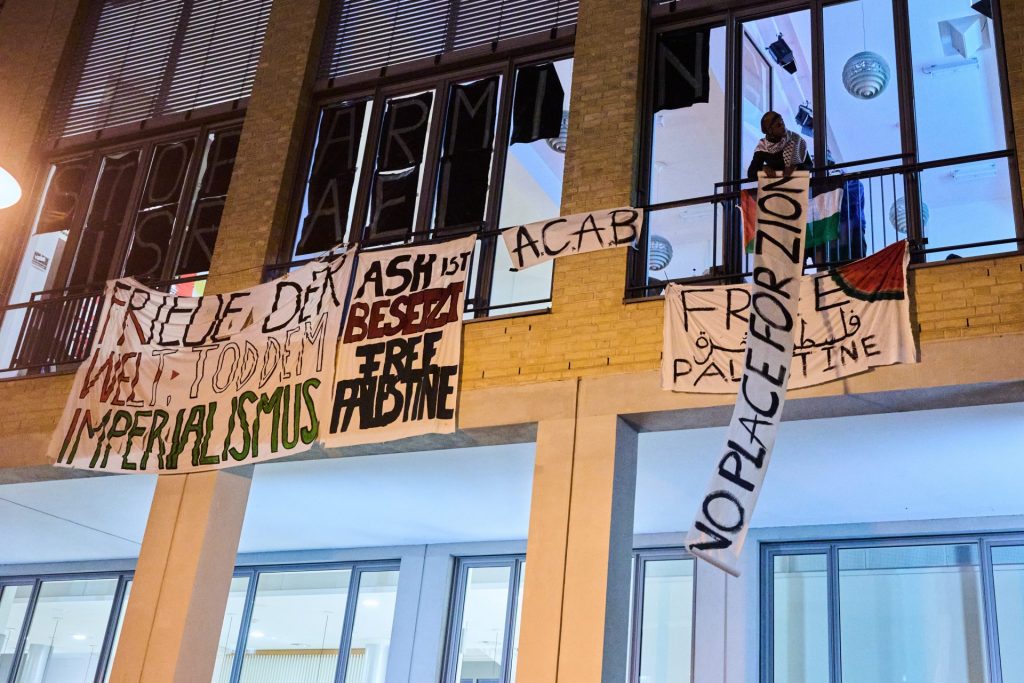 STOP ARMIN
ISRAE
FRIEDE DER
WELT, TOD DEM
IMPERIALISMUS
ASH IST
BESETZT
FREE
PALESTINE
A.C.A.B
NO PLACE FOR ZION
FREE
PALESTINE